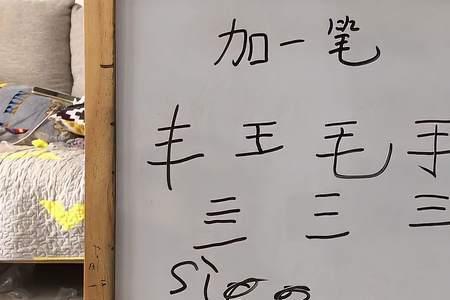 加一笔
丰 王 毛 手
亖 三 三